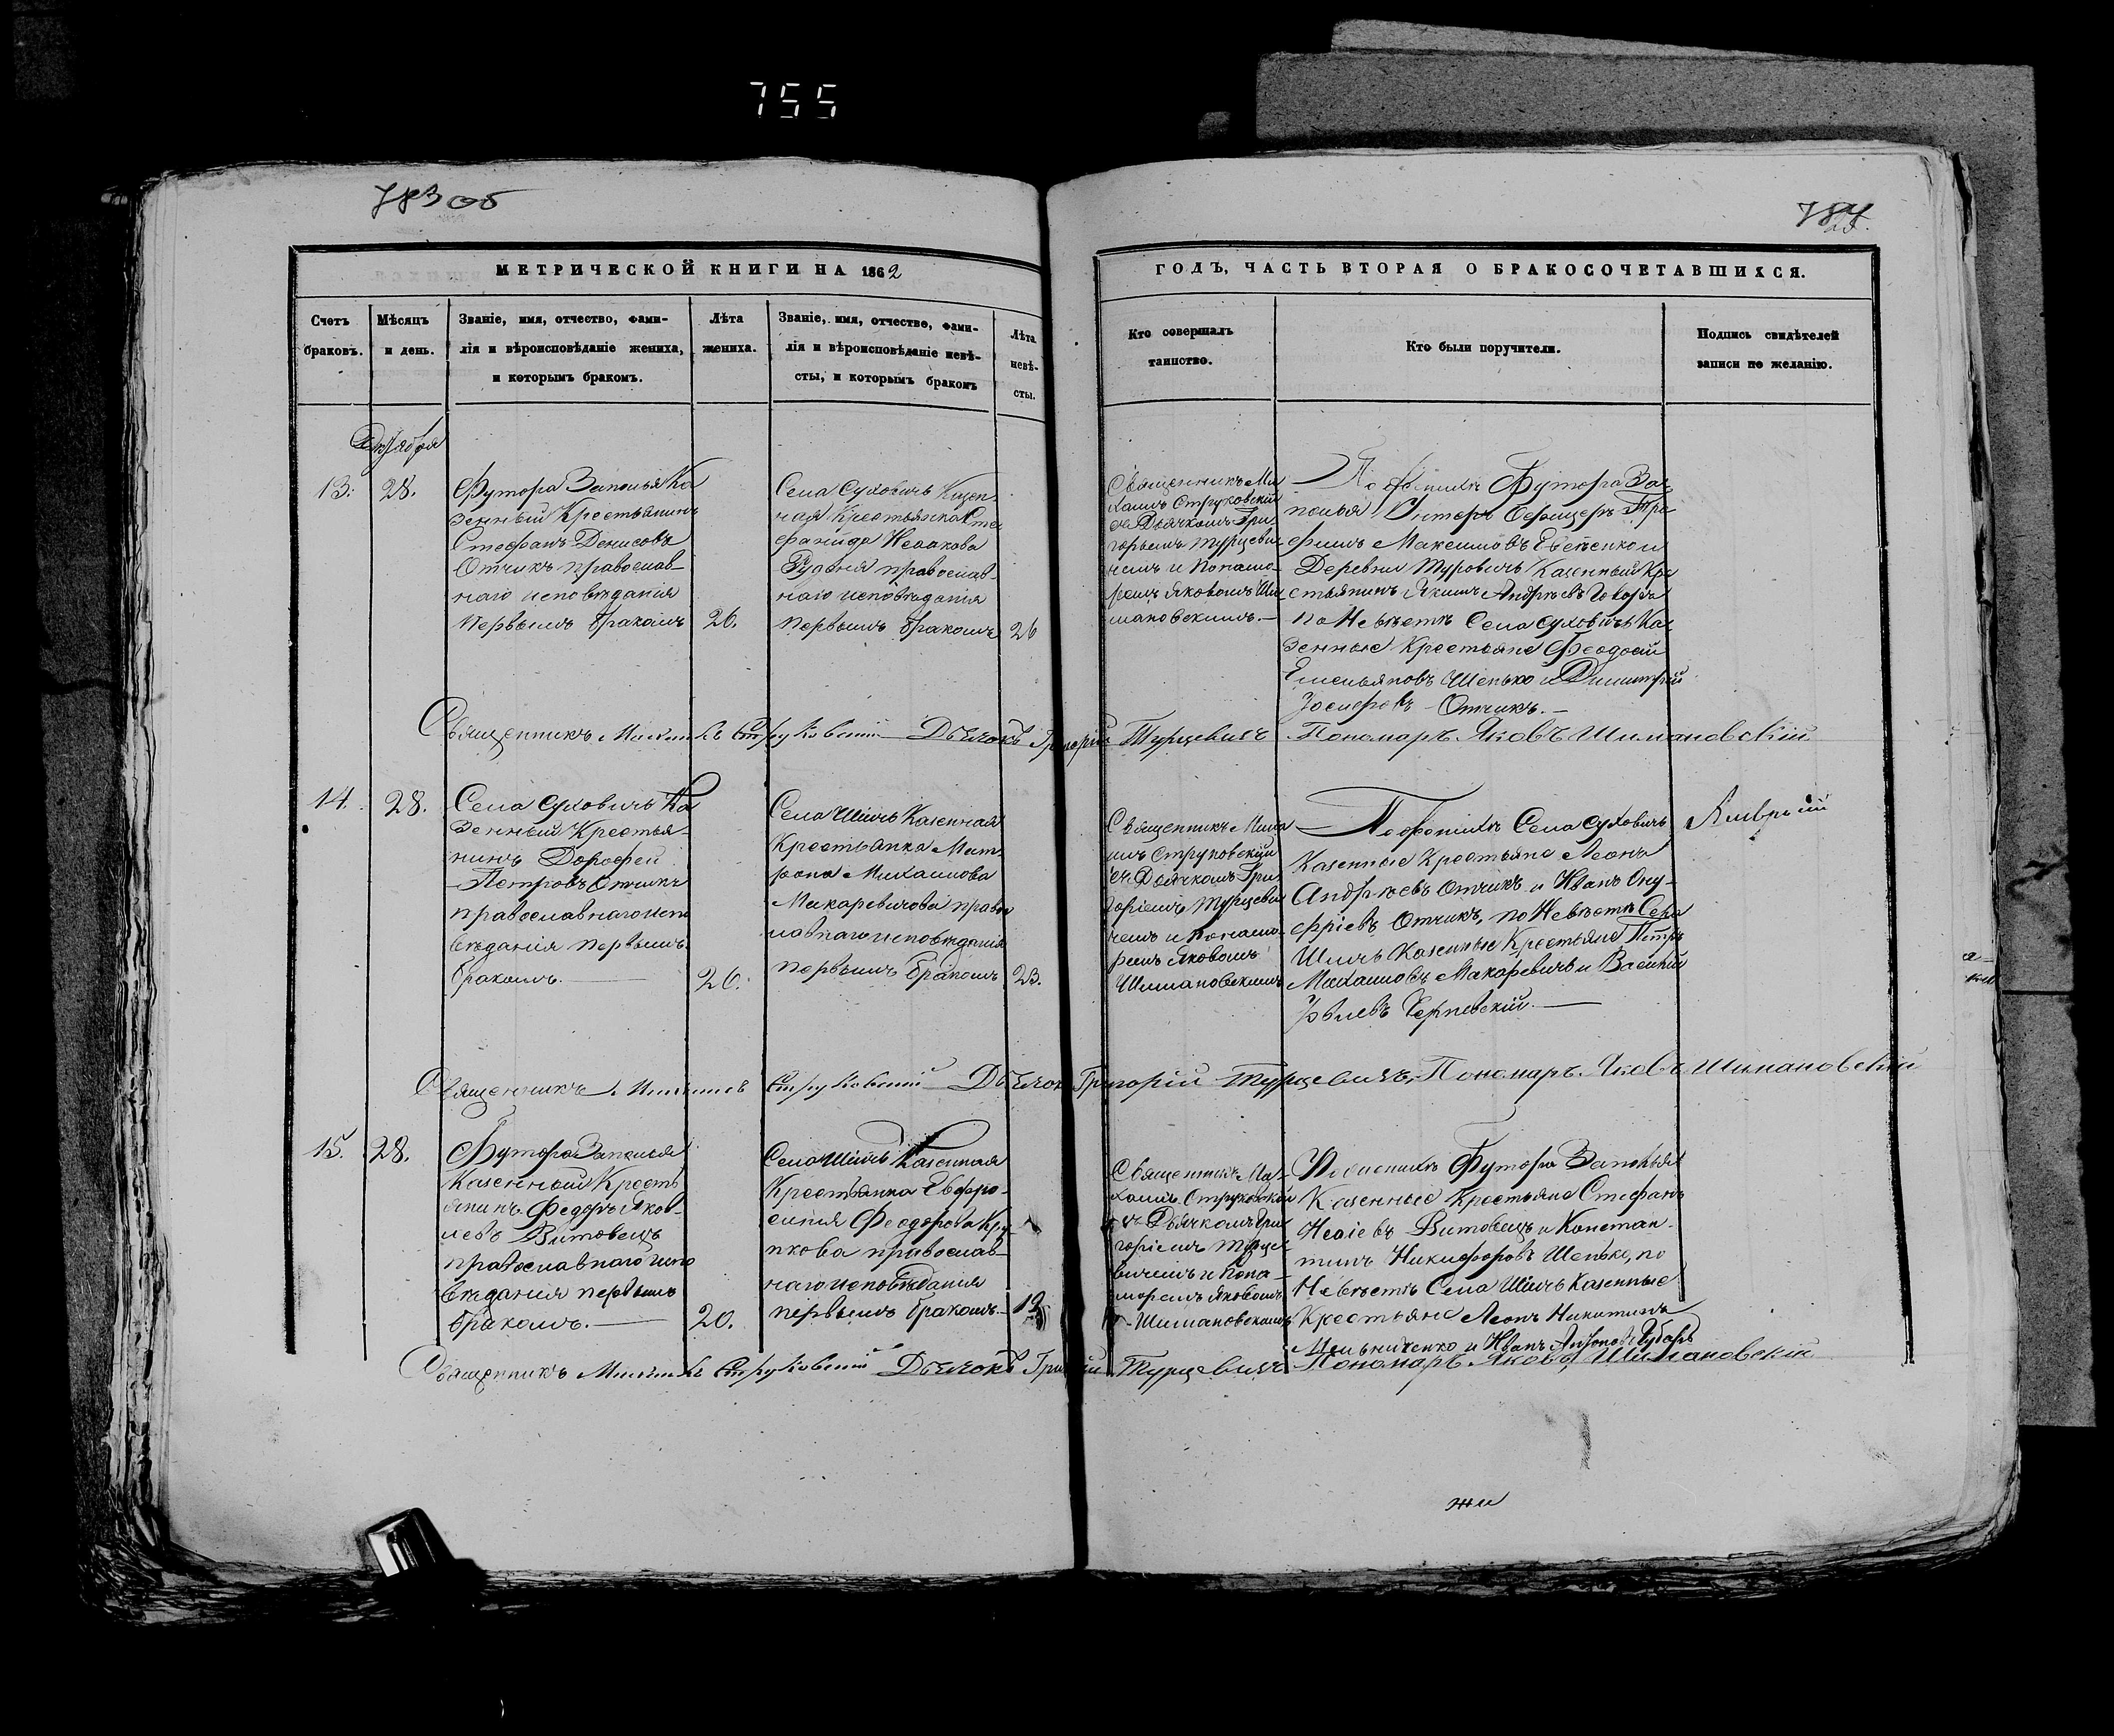 755
783 об
784
МЕТРИЧЕСКОЙ КНИГИ НА 1862
Счетъ
браковъ.
Мѣсяцъ
и день.
Званіе, имя, отчество, фами-
лія и вѣроисповѣданіе жениха,
и которымъ бракомъ.
Лѣта
жениха.
Званіе, имя, отчество, фами-
лія и вѣроисповѣданіе невѣ-
сты, и которымъ бракомъ
Лѣта
невѣ-
сты.
ГОДЪ, ЧАСТЬ ВТОРАЯ О БРАКОСОЧЕТАВШИХСЯ.
Кто совершалъ
таинство.
Кто были поручители.
Подпись свидѣтелей
записи по желанію.
13.
28.
Футора Заполья Ка
зенный Крестьянинъ
Стефанъ Денисовъ
Отчикъ православ-
наго исповѣданія
первымъ бракомъ
26.
Села Суховичъ Казен
ная Крестьянка Сте
фанида Исакова
православ-
наго исповѣданія
первымъ бракомъ
26
Священникъ Ми
хаилъ Струковскій
съ Дьячкомъ Гри
горіемъ Турцеви
чемъ и Понома-
ремъ Яковомъ Ши
мановскимъ.—
По Женихѣ Футора За
полья Унтеръ Офицеръ Тро
фимъ Максимовъ и
Деревни Туровичъ Казенный Кре
стьянинъ Якимъ Андреевъ
по Невѣстѣ Села Суховичъ Ка
зенные Крестьяне Феодосій
Емельяновъ Шепько и Димитрій
Іосифовъ Отчикъ.—
Священникъ Михаилъ Струковскій Дьячокъ Григорій Турцевичъ Пономарь Яковъ Шимановскій
14.
28.
Села Суховичъ Ка
зенный Крестья-
нинъ Дорофей
Петровъ Отчикъ
православнаго испо
вѣданія первымъ
бракомъ.—
26.
Села Шичъ Казенная
Крестьянка Мат
рона Михаилова
Макаревичова правос
лавнаго исповѣданія
первымъ бракомъ
23.
Священникъ Миха
илъ Струковскій
съ Дьячкомъ Гри
горіемъ Турцеви
чемъ и Понома-
ремъ Яковомъ
Шимановскимъ
По Женихѣ Села Суховичъ
Казенные Крестьяне Леонъ
Андреевъ Отчикъ и Иванъ Ону-
фріевъ Отчикъ, по Невѣстѣ Села
Шичъ Казенные Крестьяне Петръ
Михаиловъ Макаревичъ и Василій
Священникъ Михаилъ Струковскій Дьячокъ Григорій Турцевичъ, Пономарь Яковъ Шимановскій
15.
28.
Футора Заполья
Казенный Кресть
янинъ Федоръ Яков-
левъ Витовецъ
православнаго испо
вѣданія первымъ
бракомъ.—
20.
Села Шичъ Казенная
Крестьянка Евфро-
синія Феодорова Кру
пкова православ-
наго исповѣданія
первымъ бракомъ.—
Священникъ Ми-
хаилъ Струковскій
съ Дьячкомъ Гри
горіемъ Турце-
вичемъ и Поно-
маремъ Яковомъ
Шимановскимъ
По Женихѣ Футора Заполья
Казенные Крестьяне Стефанъ
Витовецъ и Констан-
тинъ Никифоровъ Шепько, по
Невѣстѣ Села Шичъ Казенные
Крестьяне Леонъ Никитинъ
Мельниченко и Иванъ Антоновъ
Священникъ Михаилъ Струковскій Дьячокъ Григорій Турцевичъ Пономарь Яковъ Шимановскій
жи